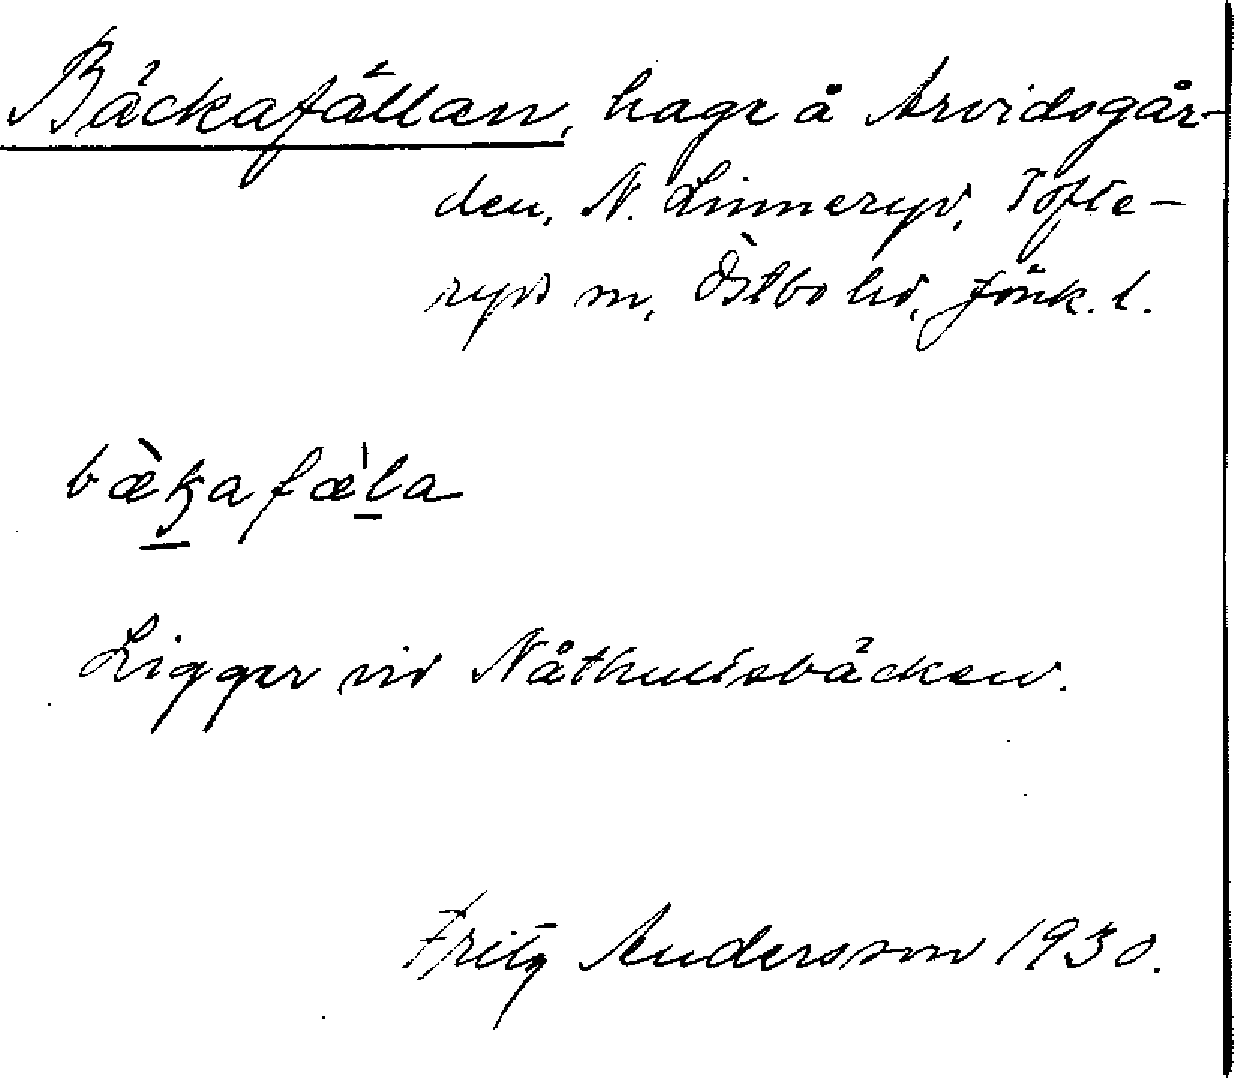 Bäckafällan, hage å Arvidsgår-
den, N. Linneryd, Tofte-
ryds sn, Östbo hd, Jönk. l.
bæ̀ka fæ̀la
Ligger vid Nåthultsbäcken.
Fritz Andersson 1930.